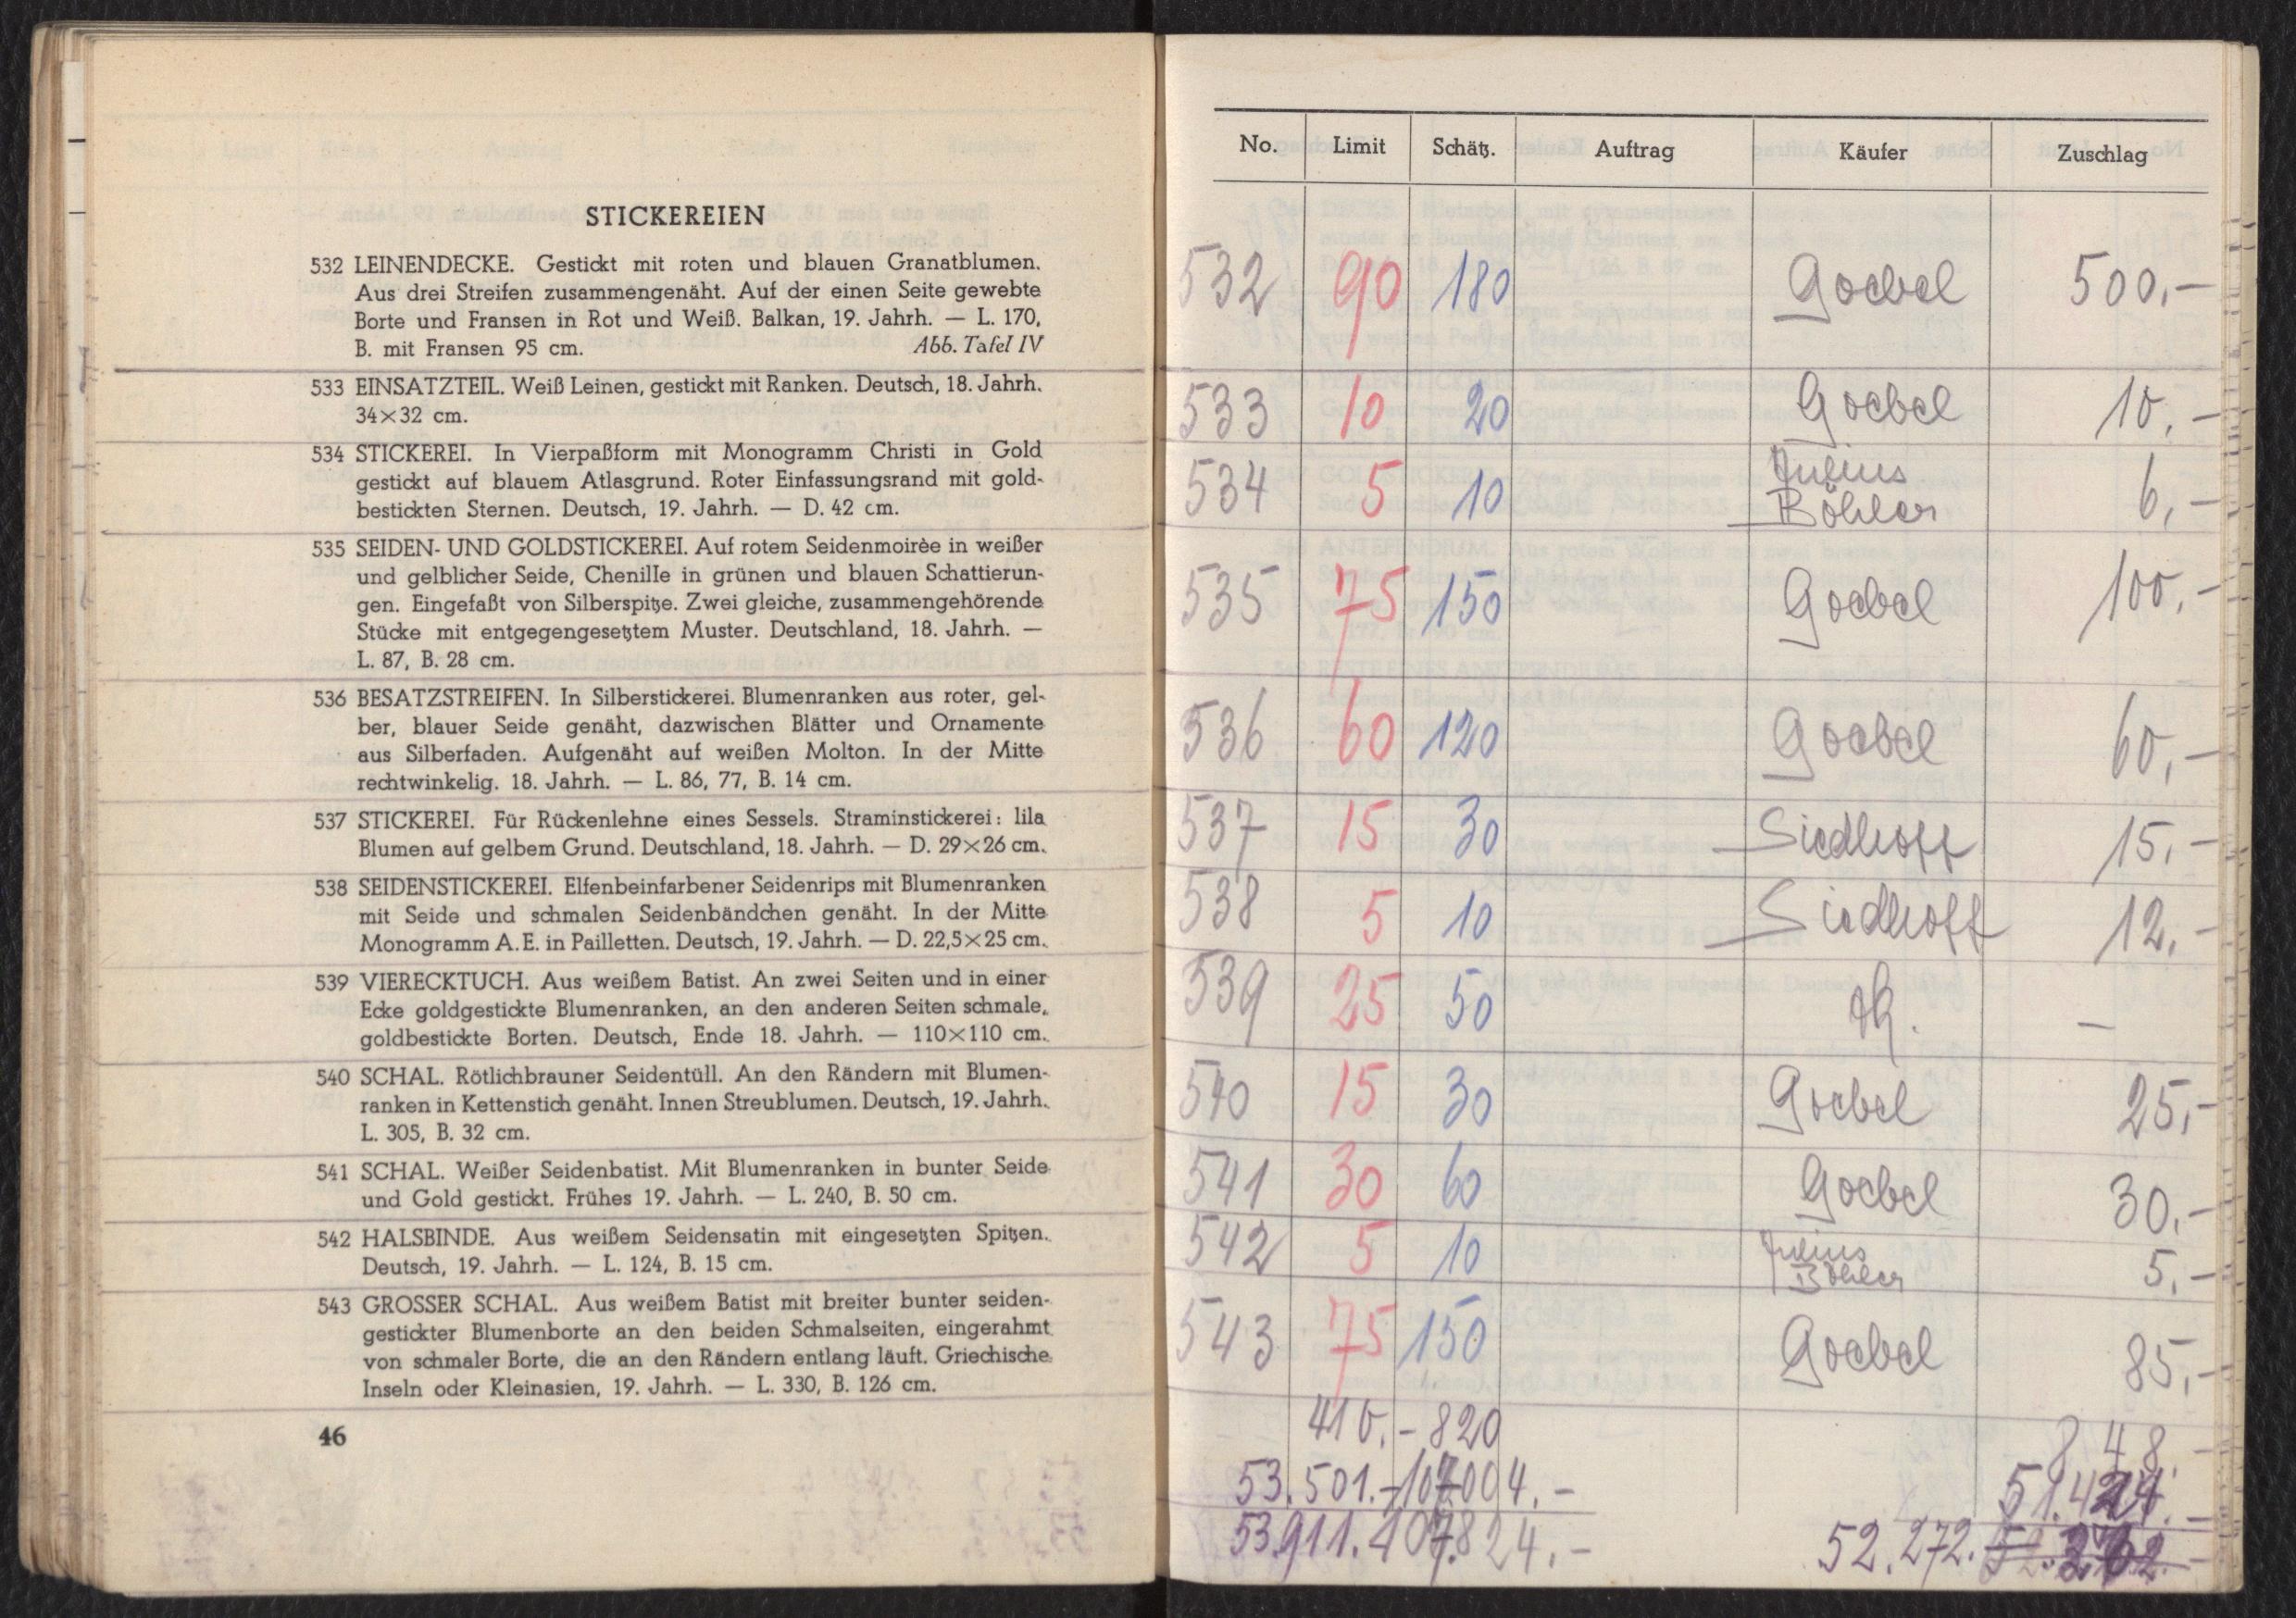 STICKEREIEN
532 LEINENDECKE. Gestickt mit roten und blauen Granatblumen.
Aus drei Streifen zusammengenäht. Auf der einen Seite gewebte
Borte und Fransen in Rot und Weiß. Balkan, 19. Jahrh. — L. 170,
B. mit Fransen 95 cm. Abb. Tafel IV
533 EINSATZTEIL. Weiß Leinen, gestickt mit Ranken. Deutsch, 18. Jahrh.
34×32 cm.
534 STICKEREI. In Vierpaßform mit Monogramm Christi in Gold
gestickt auf blauem Atlasgrund. Roter Einfassungsrand mit gold-
bestickten Sternen. Deutsch, 19. Jahrh. — D. 42 cm.
535 SEIDEN- UND GOLDSTICKEREI. Auf rotem Seidenmoirèe in weißer
und gelblicher Seide, Chenille in grünen und blauen Schattierun-
gen. Eingefaßt von Silberspitze. Zwei gleiche, zusammengehörende
Stücke mit entgegengesetztem Muster. Deutschland, 18. Jahrh. —
L. 87, B. 28 cm.
536 BESATZSTREIFEN. In Silberstickerei. Blumenranken aus roter, gel-
ber, blauer Seide genäht, dazwischen Blätter und Ornamente
aus Silberfaden. Aufgenäht auf weißen Molton. In der Mitte
rechtwinkelig. 18. Jahrh. — L. 86, 77, B. 14 cm.
537 STICKEREI. Für Rückenlehne eines Sessels. Straminstickerei: lila
Blumen auf gelbem Grund. Deutschland, 18. Jahrh. — D. 29×26 cm.
538 SEIDENSTICKEREI. Elfenbeinfarbener Seidenrips mit Blumenranken
mit Seide und schmalen Seidenbändchen genäht. In der Mitte
Monogramm A. E. in Pailletten. Deutsch, 19. Jahrh. — D. 22,5×25 cm.
539 VIERECKTUCH. Aus weißem Batist. An zwei Seiten und in einer
Ecke goldgestickte Blumenranken, an den anderen Seiten schmale,
goldbestickte Borten. Deutsch, Ende 18. Jahrh. — 110×110 cm.
540 SCHAL. Rötlichbrauner Seidentüll. An den Rändern mit Blumen-
ranken in Kettenstich genäht. Innen Streublumen. Deutsch, 19. Jahrh.
L. 305, B. 32 cm.
541 SCHAL. Weißer Seidenbatist. Mit Blumenranken in bunter Seide
und Gold gestickt. Frühes 19. Jahrh. — L. 240, B. 50 cm.
542 HALSBINDE. Aus weißem Seidensatin mit eingesetzten Spitzen.
Deutsch, 19. Jahrh. — L. 124, B. 15 cm.
543 GROSSER SCHAL. Aus weißem Batist mit breiter bunter seiden-
gestickter Blumenborte an den beiden Schmalseiten, eingerahmt
von schmaler Borte, die an den Rändern entlang läuft. Griechische
Inseln oder Kleinasien, 19. Jahrh. — L. 330, B. 126 cm.
46
No. Limit Schätz. Auftrag Käufer Zuschlag
532 90 180 Goebel 500,-
533 10 20 Goebel 10,-
534 5 10 Julius Böhler 6,-
535 75 150 Goebel 100,-
536 60 120 Goebel 60,-
537 15 30 Siedhoff 15,-
538 5 10 Siedhoff 12,-
539 25 50 R. —
540 15 30 Goebel 25,-
541 30 60 Goebel 30,-
542 5 10 Julius Böhler 5,-
543 75 150 Goebel 85,-
410.- 820 848.-
53.501.- 107004.- 51.424.-
53.911. 107.824.- 52.272.